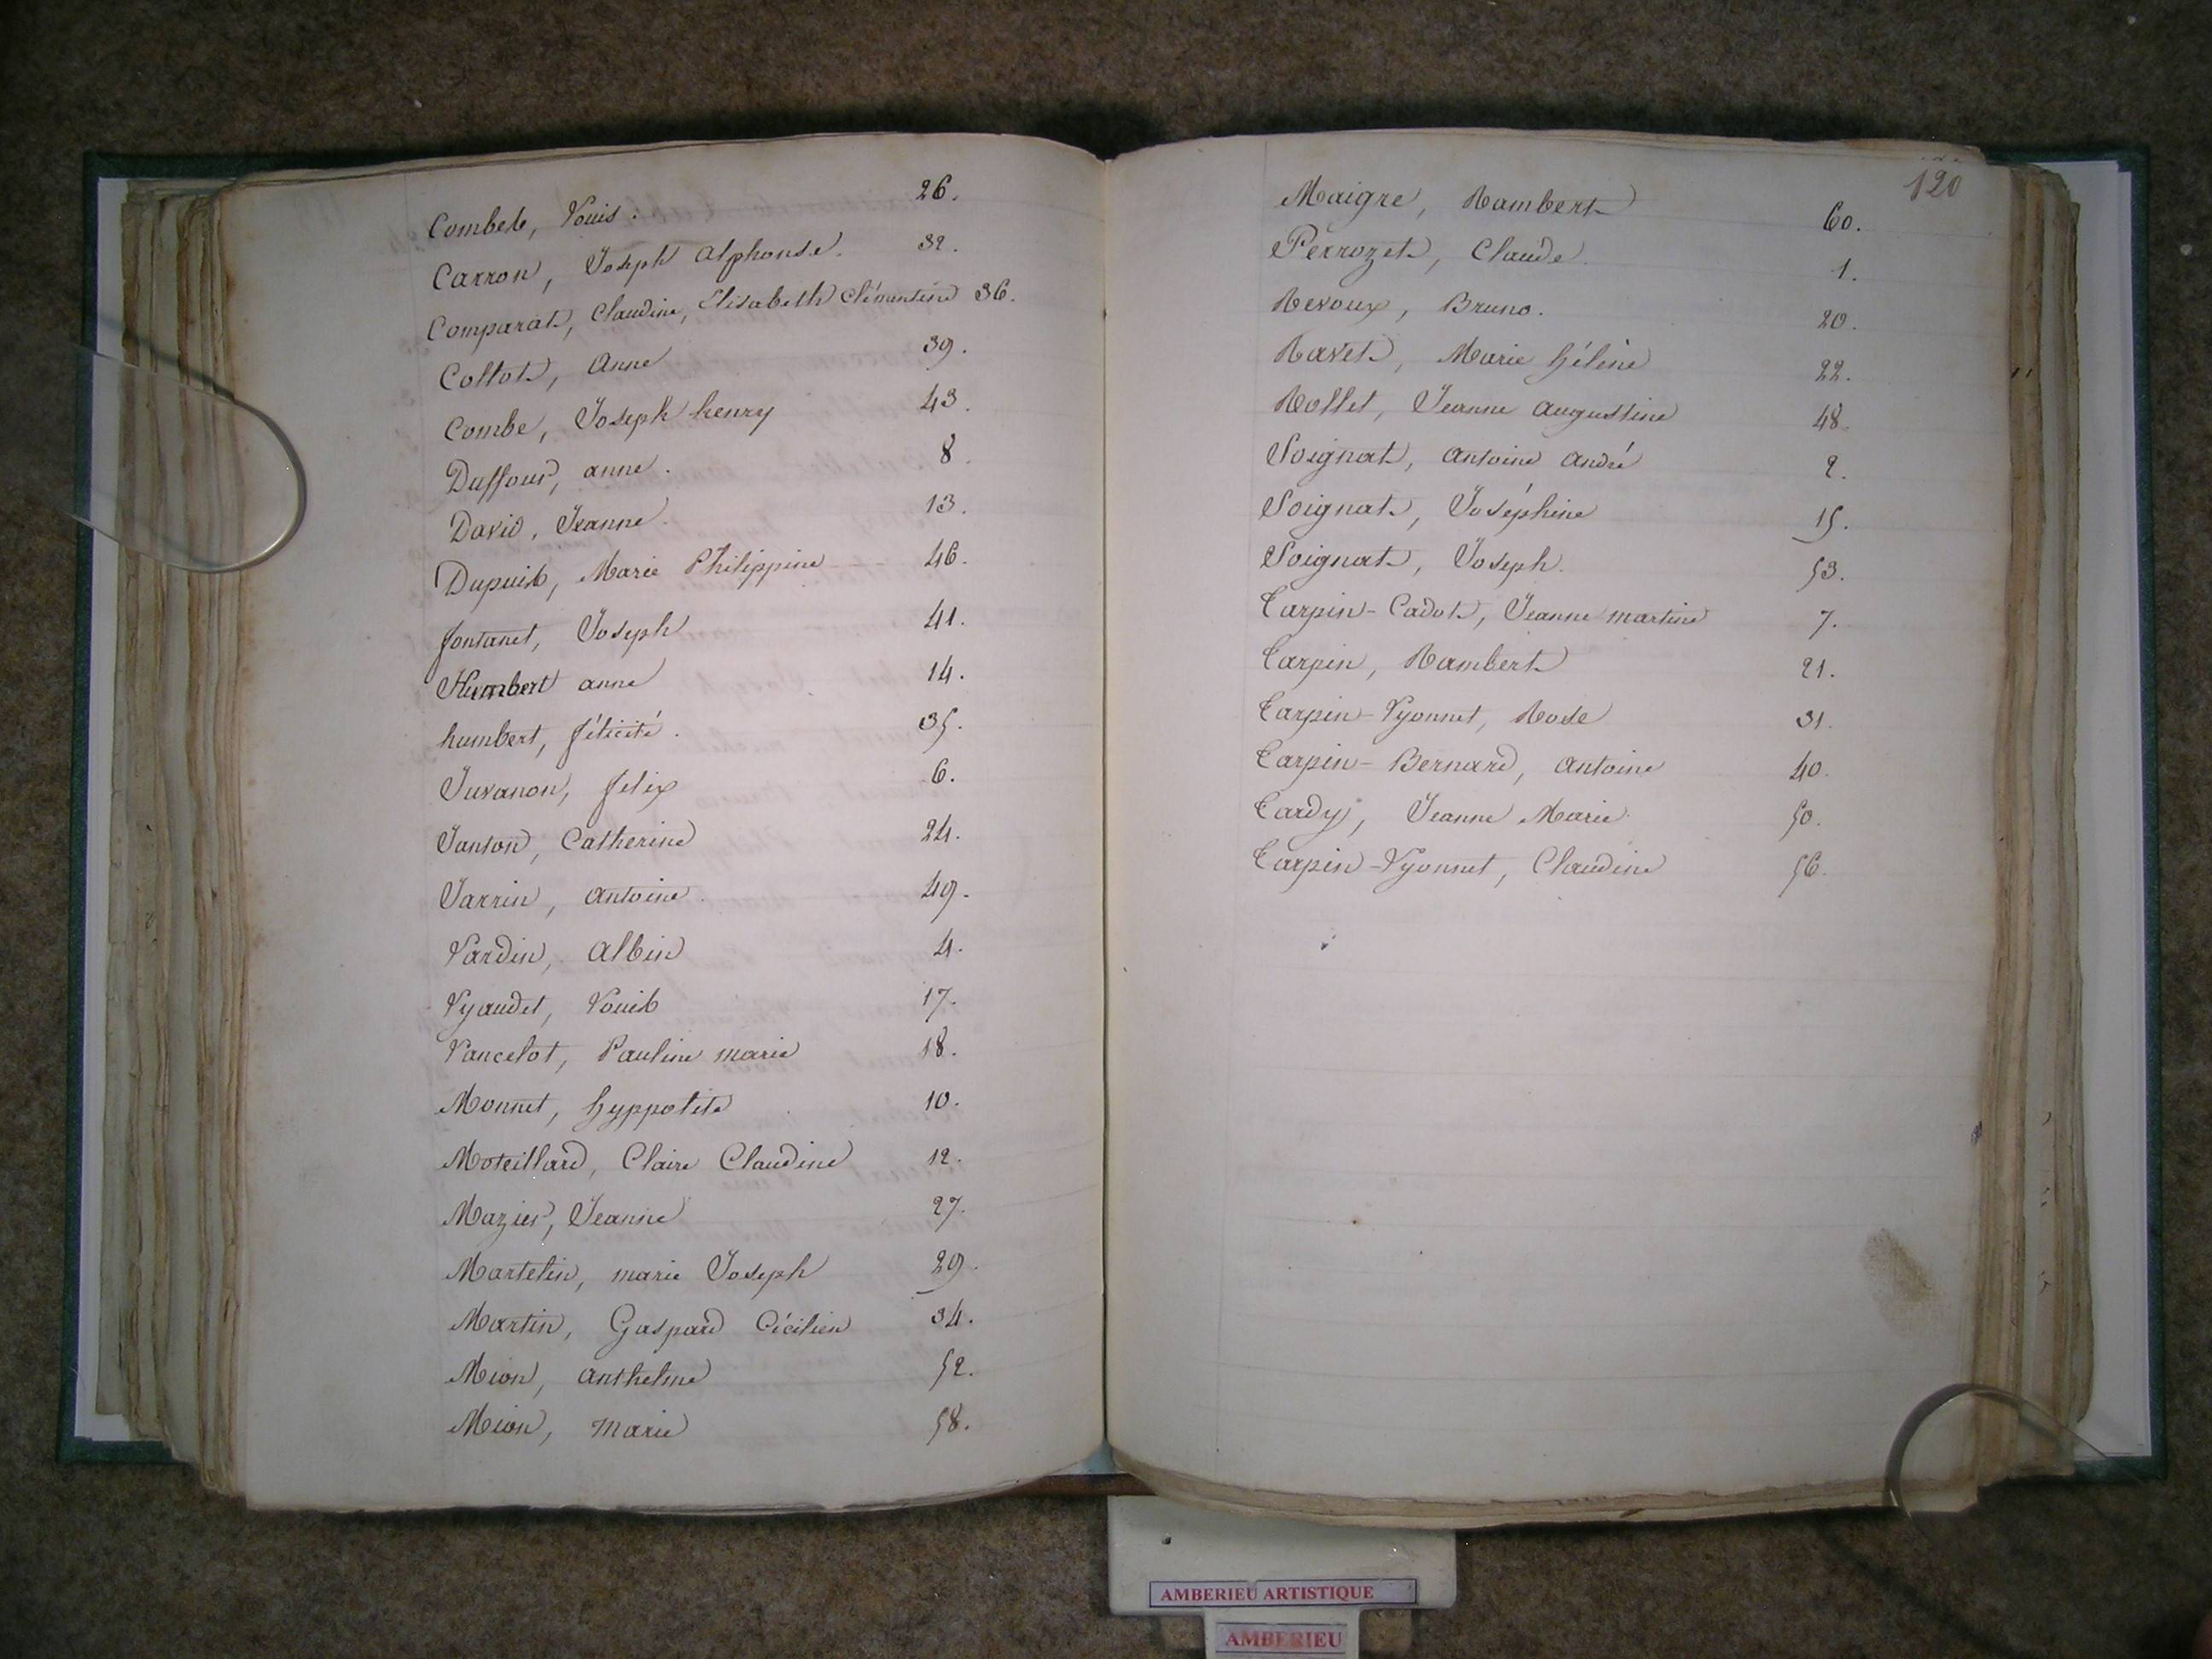 Combet, Louis. 26.
Carron, Joseph Alphonse. 32.
Comparat, Claudine, Elisabeth Clémentine 36.
Collot, Anne 39.
Combe, Joseph henry 43.
Duffour, anne. 8.
David, Jeanne. 13.
Dupuis, Marie Philippine 46.
fontanet, Joseph 41.
Humbert anne 14.
humbert, félicité. 35.
Juvanon, felix 6.
Janton, Catherine 24.
Jarrin, Antoine. 49.
Lardin, Albin 4.
Lyaudet, Louis 17.
Lancelot, Pauline marie 18.
Monnet, hyppolite 10.
Moteillard, Claire Claudine 12.
Mazier, Jeanne 27.
Martelin, marie Joseph 29.
Martin, Gaspard Cécilien 34.
Mion, Anthelme 52.
Mion, Marie 58.
120
Maigre, Rambert 60.
Perrozet, Claude. 1.
Revoux, Bruno. 20.
Ravet, Marie hélène 22.
Rollet, Jeanne augustine 48.
Soignat, Antoine André 2.
Soignat, Joséphine 15.
Soignat, Joseph. 53.
Tarpin-Cadot, Jeanne martine 7.
Tarpin, Rambert 21.
Tarpin-Lyonnet, Rose 31.
Tarpin-Bernard, Antoine 40.
Tardy, Jeanne Marie. 50.
Tarpin-Lyonnet, Claudine 56.
AMBERIEU ARTISTIQUE
AMBERIEU